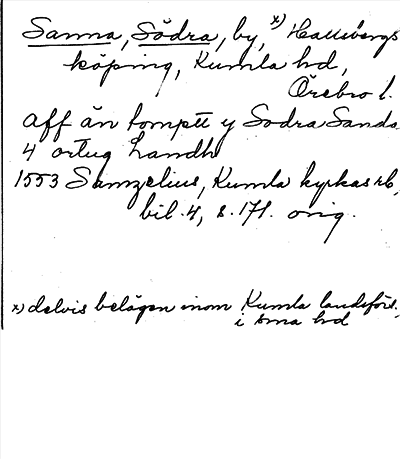 Sanna, Södra, by, x) Hallsbergs
köping, Kumla hd,
Örebro l.
aff än tomptt y Sodra Sanda
4 ortug Landh
1553 Samzelius, Kumla kyrkas rb,
bil. 4, s. 171. orig.
x) delvis belägen inom Kumla landsförs.
i sma hd